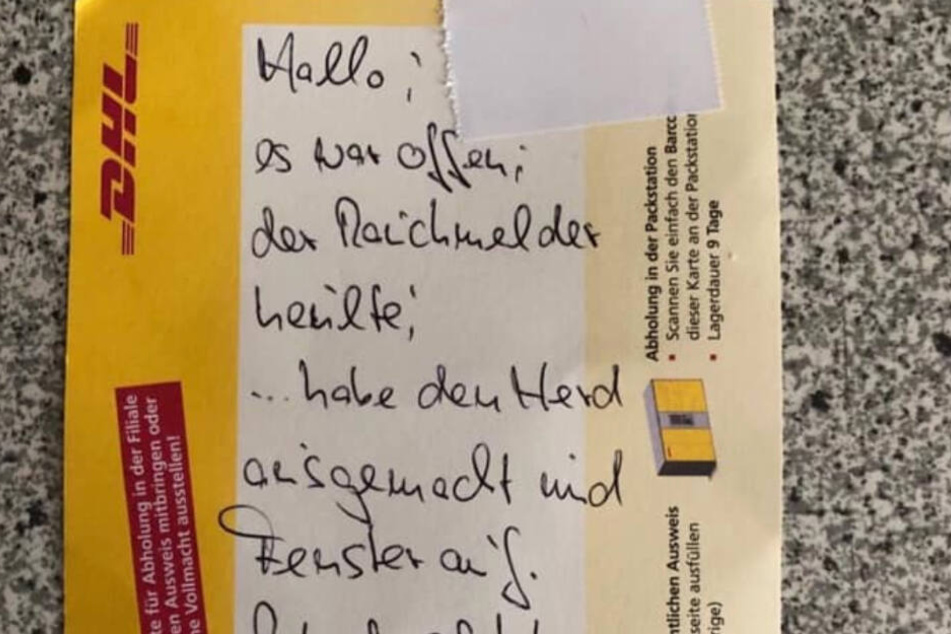 DHL
Hallo;
es war offen;
der Rauchmelder
heulte;
...habe den Herd
ausgemacht und
Fenster auf.
te für Abholung in der Filiale
en Ausweis mitbringen oder
ne Vollmacht ausstellen!
Abholung in der Packstation
• Scannen Sie einfach den Barco
dieser Karte an der Packstation
• Lagerdauer 9 Tage
ntlichen Ausweis
seite ausfüllen
rige)